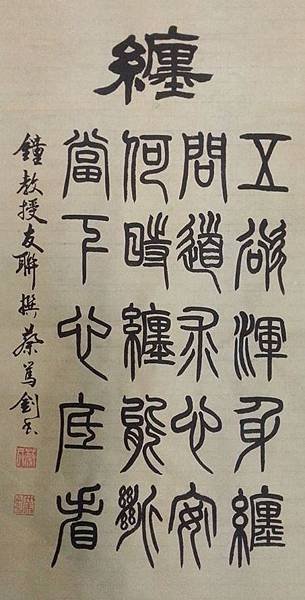 纏
五欲渾身纏
問道求心安
何時纏能斷
當下心底看
鐘教授友聯撰蔡篤釗書